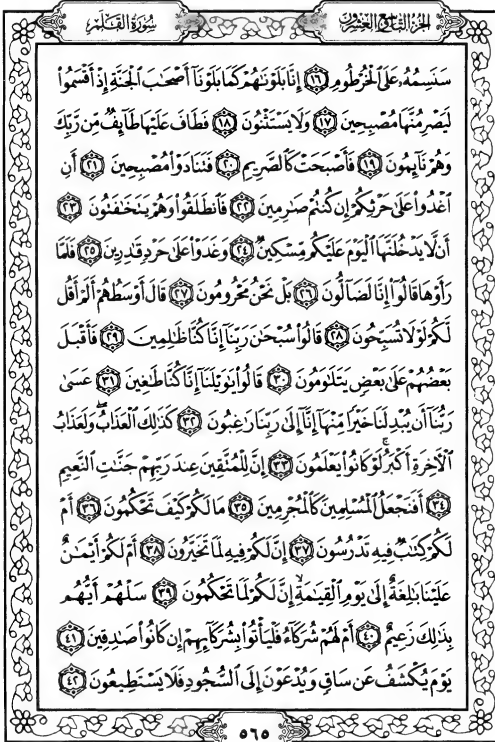 الجزء التاسع والعشرون
سورة القلم
سَنَسِمُهُۥ عَلَى ٱلْخُرْطُومِ ١٦ إِنَّا بَلَوْنَٰهُمْ كَمَا بَلَوْنَآ أَصْحَٰبَ ٱلْجَنَّةِ إِذْ أَقْسَمُوا۟
لَيَصْرِمُنَّهَا مُصْبِحِينَ ١٧ وَلَا يَسْتَثْنُونَ ١٨ فَطَافَ عَلَيْهَا طَآئِفٌ مِّن رَّبِّكَ
وَهُمْ نَآئِمُونَ ١٩ فَأَصْبَحَتْ كَٱلصَّرِيمِ ٢٠ فَتَنَادَوْا۟ مُصْبِحِينَ ٢١ أَنِ
ٱغْدُوا۟ عَلَىٰ حَرْثِكُمْ إِن كُنتُمْ صَٰرِمِينَ ٢٢ فَٱنطَلَقُوا۟ وَهُمْ يَتَخَٰفَتُونَ ٢٣
أَن لَّا يَدْخُلَنَّهَا ٱلْيَوْمَ عَلَيْكُم مِّسْكِينٌ ٢٤ وَغَدَوْا۟ عَلَىٰ حَرْدٍ قَٰدِرِينَ ٢٥ فَلَمَّا
رَأَوْهَا قَالُوٓا۟ إِنَّا لَضَآلُّونَ ٢٦ بَلْ نَحْنُ مَحْرُومُونَ ٢٧ قَالَ أَوْسَطُهُمْ أَلَمْ أَقُل
لَّكُمْ لَوْلَا تُسَبِّحُونَ ٢٨ قَالُوا۟ سُبْحَٰنَ رَبِّنَآ إِنَّا كُنَّا ظَٰلِمِينَ ٢٩ فَأَقْبَلَ
بَعْضُهُمْ عَلَىٰ بَعْضٍ يَتَلَٰوَمُونَ ٣٠ قَالُوا۟ يَٰوَيْلَنَآ إِنَّا كُنَّا طَٰغِينَ ٣١ عَسَىٰ
رَبُّنَآ أَن يُبْدِلَنَا خَيْرًا مِّنْهَآ إِنَّآ إِلَىٰ رَبِّنَا رَٰغِبُونَ ٣٢ كَذَٰلِكَ ٱلْعَذَابُ وَلَعَذَابُ
ٱلْءَاخِرَةِ أَكْبَرُ لَوْ كَانُوا۟ يَعْلَمُونَ ٣٣ إِنَّ لِلْمُتَّقِينَ عِندَ رَبِّهِمْ جَنَّٰتِ ٱلنَّعِيمِ
٣٤ أَفَنَجْعَلُ ٱلْمُسْلِمِينَ كَٱلْمُجْرِمِينَ ٣٥ مَا لَكُمْ كَيْفَ تَحْكُمُونَ ٣٦ أَمْ
لَكُمْ كِتَٰبٌ فِيهِ تَدْرُسُونَ ٣٧ إِنَّ لَكُمْ فِيهِ لَمَا تَخَيَّرُونَ ٣٨ أَمْ لَكُمْ أَيْمَٰنٌ
عَلَيْنَا بَٰلِغَةٌ إِلَىٰ يَوْمِ ٱلْقِيَٰمَةِ إِنَّ لَكُمْ لَمَا تَحْكُمُونَ ٣٩ سَلْهُمْ أَيُّهُم
بِذَٰلِكَ زَعِيمٌ ٤٠ أَمْ لَهُمْ شُرَكَآءُ فَلْيَأْتُوا۟ بِشُرَكَآئِهِمْ إِن كَانُوا۟ صَٰدِقِينَ ٤١
يَوْمَ يُكْشَفُ عَن سَاقٍ وَيُدْعَوْنَ إِلَى ٱلسُّجُودِ فَلَا يَسْتَطِيعُونَ ٤٢
٥٦٥